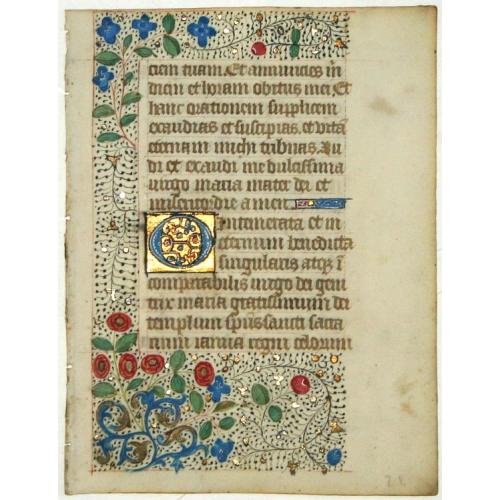 ciem tuam. Et annuncies in
diem et horam obitus mei. Et
hanc orationem supplicem
exaudias et suscipias. et vitã
eternam michi tribuas. Au
di et exaudi me dulcissima
virgo maria mater dei et
misericordie amen.
O intemerata et in
eternum benedicta
singularis atqꝫ ĩ
comparabilis virgo dei geni
trix maria gratissimum dei
templum spũs sancti sacra
rium ianua regni celorum